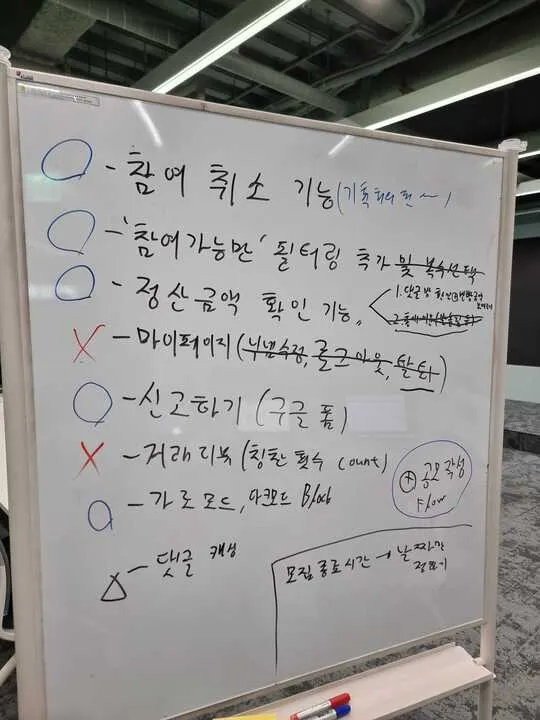 - 참여 취소 기능 (기획회의 전 ~)
- '참여가능만' 필터링 추가 및 복수선택
- 정산금액 확인 기능
1. 댓글
2.
X - 마이페이지 (닉넴수정, 로그아웃, 탈퇴)
- 신고하기 (구글 폼)
X - 거래 리뷰 (칭찬 횟수 count)
- 가로모드, 다크모드 Block
+ 공모 작성
Flow
△ - 댓글 캐싱
모집종료시간 → 날짜만